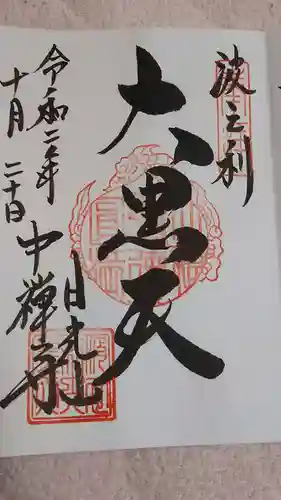 波之利
大黒天
令和二年
十月二十日
日光山
中禅寺